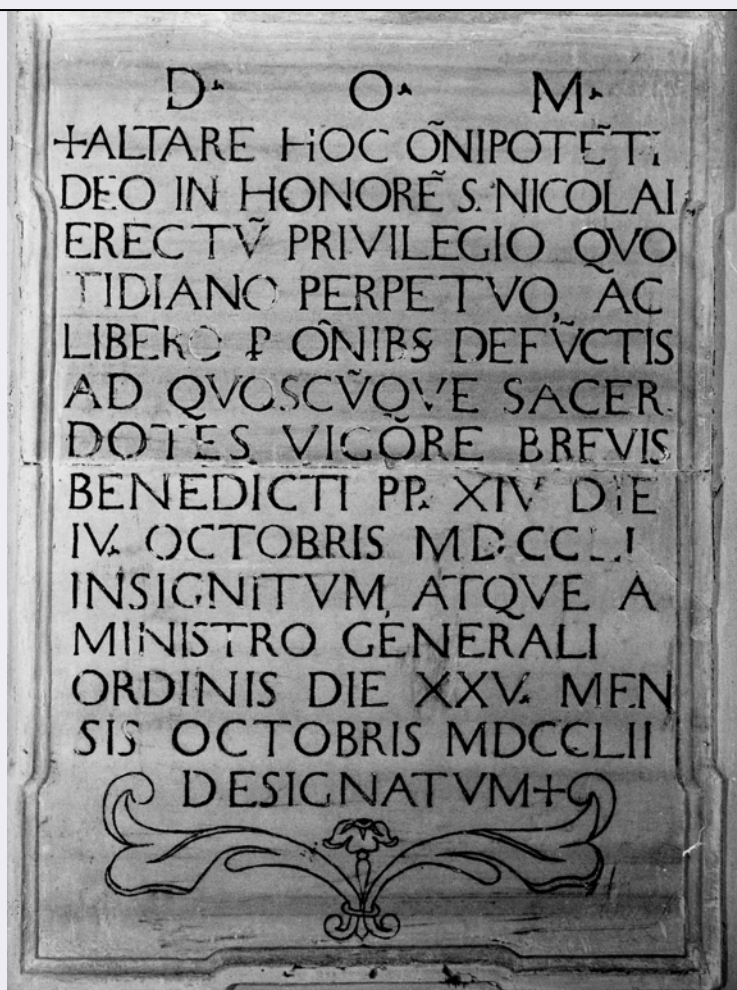 D. O. M.
+ALTARE HOC OÑIPOTẼTI
DEO IN HONORẼ S. NICOLAI
ERECTṼ PRIVILEGIO QVO
TIDIANO PERPETVO, AC
LIBERO P OÑIBS DEFṼCTIS
AD QVOSCṼQVE SACER.
DOTES VIGORE BREVIS
BENEDICTI PP. XIV DIE
IV. OCTOBRIS
INSIGNITVM, ATQVE A
MINISTRO GENERALI
ORDINIS DIE XXV. MEN
SIS OCTOBRIS MDCCLII
DESIGNATVM+